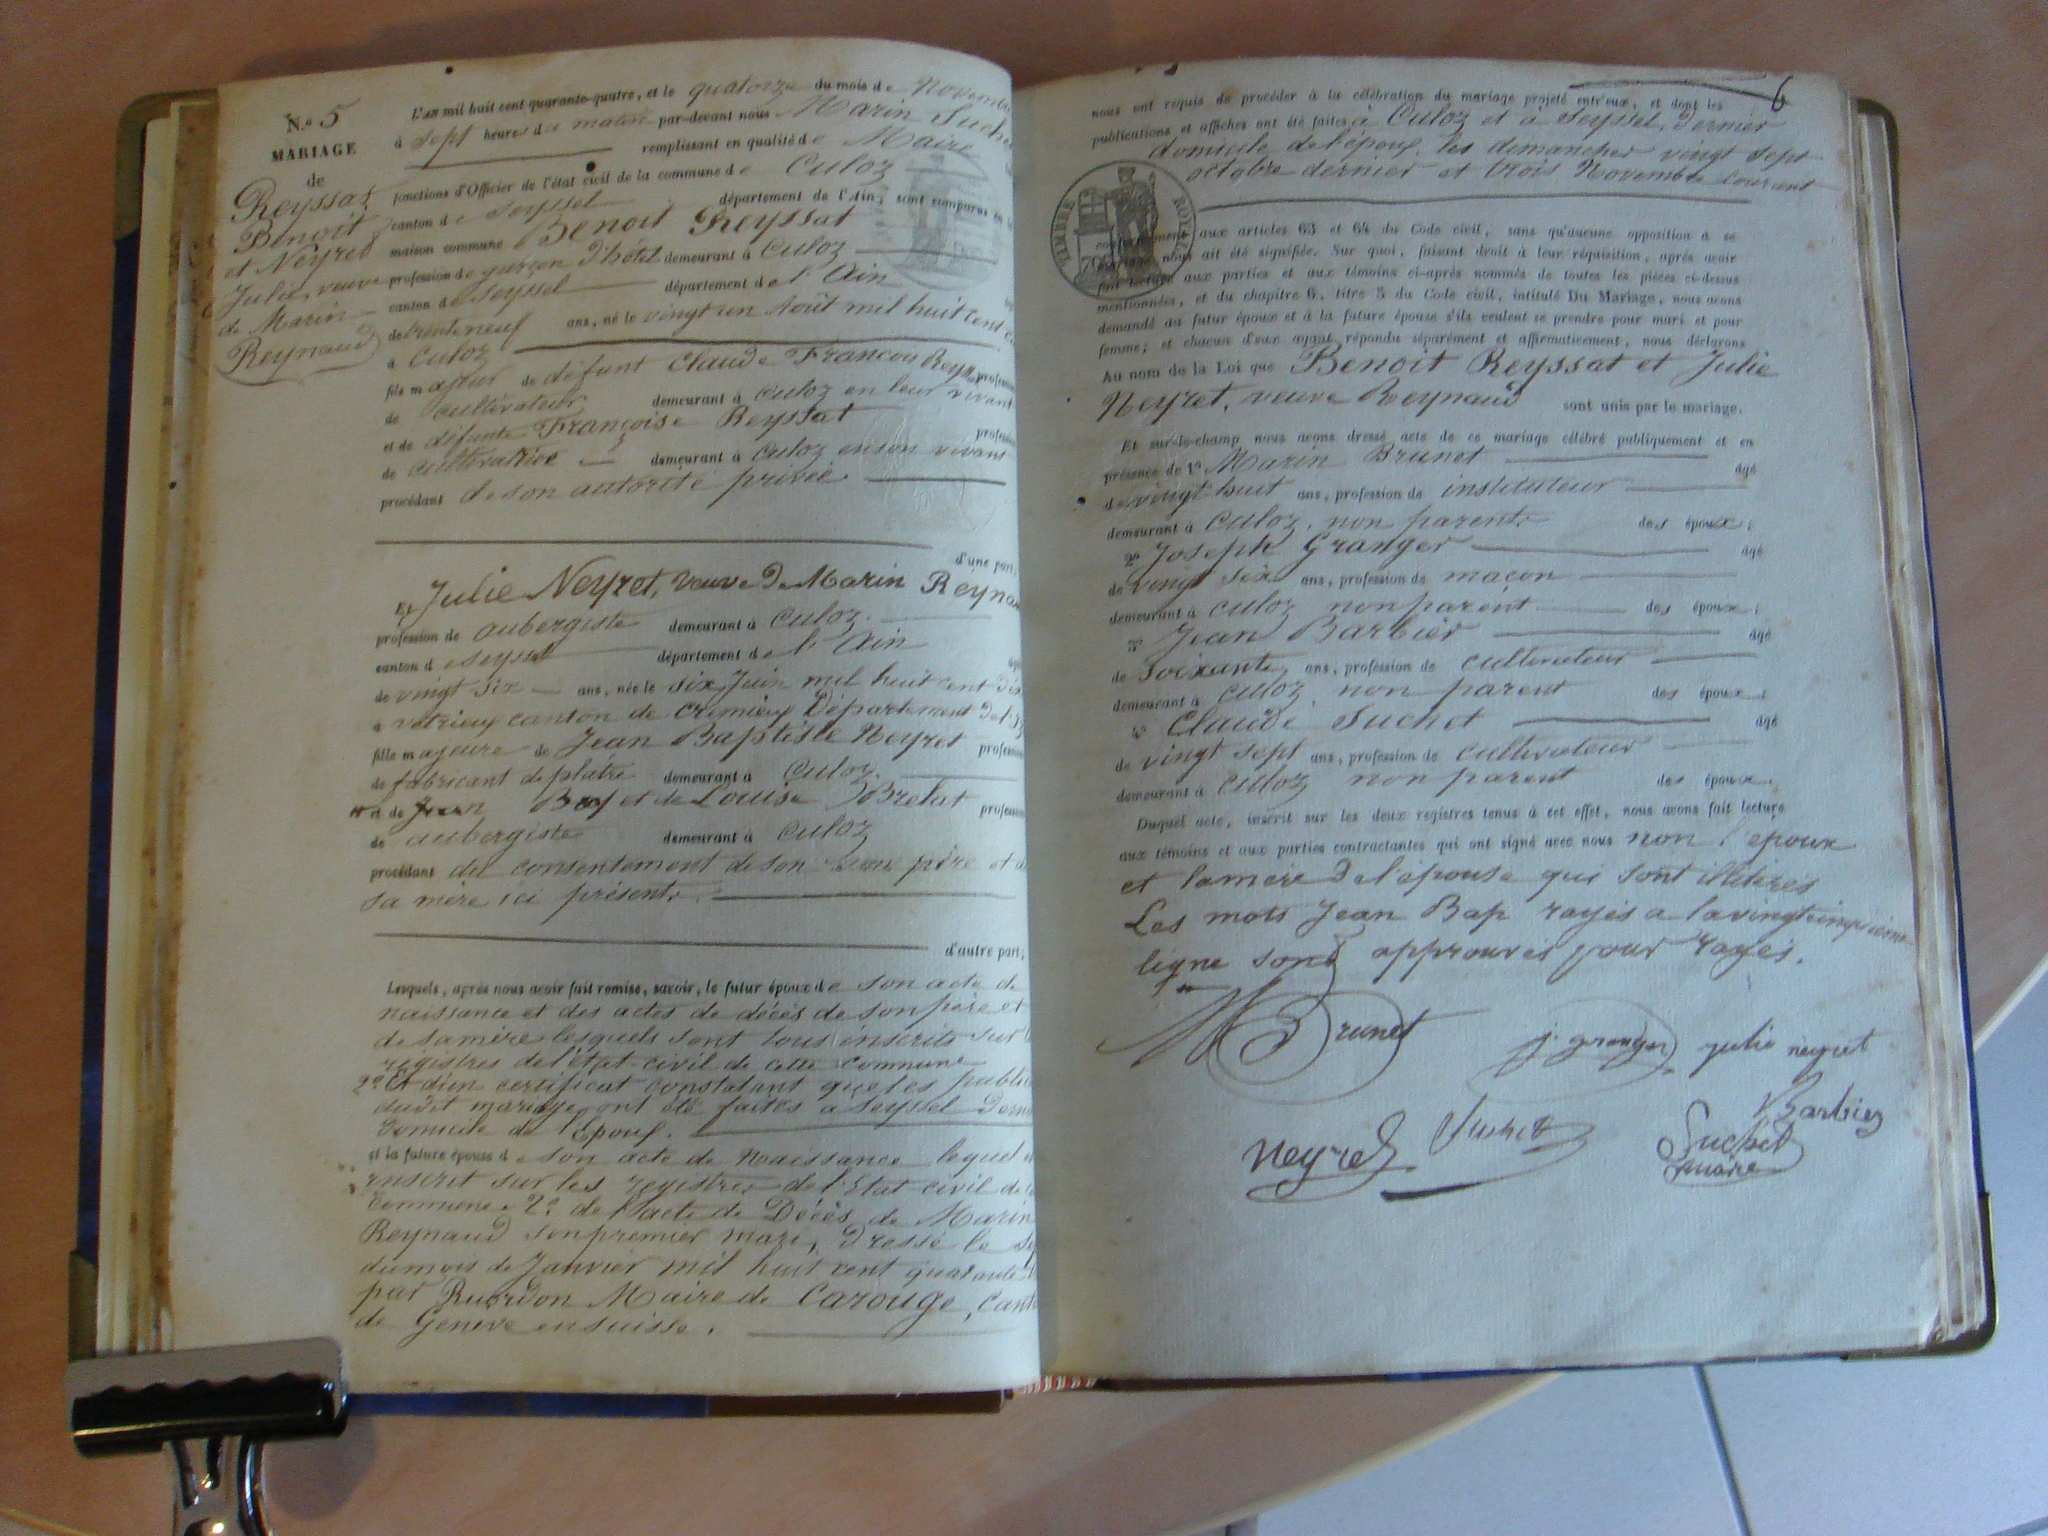 N.o 5
MARIAGE
de
Reyssat
Benoit
et Neyret
Julie, veuve
de Marin
Reynaud
L'an mil huit cent quarante-quatre, et le quatorze du mois de Novembre
à sept heures du matin par-devant nous Marin Suchet
remplissant en qualité de Maire
fonctions d'Officier de l'état civil de la commune de Culoz
canton de Seyssel département de l'Ain, sont comparus en la
maison commune Benoit Reyssat
profession de garçon d'hôtel demeurant à Culoz
canton de Seyssel département de l'Ain
de trente neuf ans, né le vingt un Août mil huit cent
à Culoz
fils majeur de défunt Claude François Reyssat profession
de cultivateur demeurant à Culoz en leur vivant
et de défunte Françoise Reyssat profession
de cultivatrice demeurant à Culoz en son vivant
procédant de son autorité privée
d'une part,
Et Julie Neyret, veuve de Marin Reynaud
profession de aubergiste demeurant à Culoz
canton de Seyssel département de l'Ain
de vingt six ans, née le six Juin mil huit cent dix
à vetrieux canton de Cremieux Département de l'
fille majeure de Jean Baptiste Neyret profession
de fabricant de platre demeurant à Culoz
et de Jean Bap et de Louise Brelat profession
de aubergiste demeurant à Culoz
procédant du consentement de son père et de
sa mère ici présent.
d'autre part,
Lesquels, après nous avoir fait remise, savoir, le futur époux de son acte de
naissance et des actes de décès de son père et
de sa mère lesquels sont tous inscrits sur
registres de l'état civil de cette commune
2° Et d'un certificat constatant que les public
dudit mariage ont été faites à Seyssel Dern
Domicile de l'époux.
et la future épouse de son acte de Naissance lequel
inscrit sur les registres de l'Etat civil de
commune. 2° de l'acte de Décès de Marin
Reynaud son premier mari, Dressé le
du mois de Janvier mil huit cent quarante
par Maire de Carouge, cant
de Genève en suisse.
6
nous ont requis de procéder à la célébration du mariage projeté entr'eux, et dont les
publications et affiches ont été faites à Culoz et à Seyssel, dernier
domicile de l'époux, les dimanches vingt sept
octobre dernier et trois Novembre courant
TIMBRE ROYAL
conformément aux articles 63 et 64 du Code civil, sans qu'aucune opposition à ce
mariage nous ait été signifiée. Sur quoi, faisant droit à leur réquisition, après avoir
fait lecture aux parties et aux témoins ci-après nommés de toutes les pièces ci-dessus
mentionnées, et du chapitre 6, titre 5 du Code civil, intitulé Du Mariage, nous avons
demandé au futur époux et à la future épouse s'ils veulent se prendre pour mari et pour
femme; et chacun d'eux ayant répondu séparément et affirmativement, nous déclarons
Au nom de la Loi que Benoit Reyssat et Julie
Neyret, veuve Reynaud sont unis par le mariage.
Et sur-le-champ nous avons dressé acte de ce mariage célébré publiquement et en
présence de 1° Marin Brunet âgé
de vingt huit ans, profession de instituteur
demeurant à Culoz, non parent des époux;
2° Joseph Granger âgé
de vingt six ans, profession de maçon
demeurant à Culoz non parent des époux;
3° Jean Barbier âgé
de soixante ans, profession de cultivateur
demeurant à Culoz non parent des époux;
4° Claude Suchet âgé
de vingt sept ans, profession de cultivateur
demeurant à Culoz non parent des époux.
Duquel acte, inscrit sur les deux registres tenus à cet effet, nous avons fait lecture
aux témoins et aux parties contractantes qui ont signé avec nous non l'époux
et la mère de l'épouse qui sont illitérés
Les mots Jean Bap rayés a la vingt cinquième
ligne sont approuvés pour rayés.
M Brunet
j. granger
julie neyret
Barbier
Neyret
Suchet
Suchet
maire